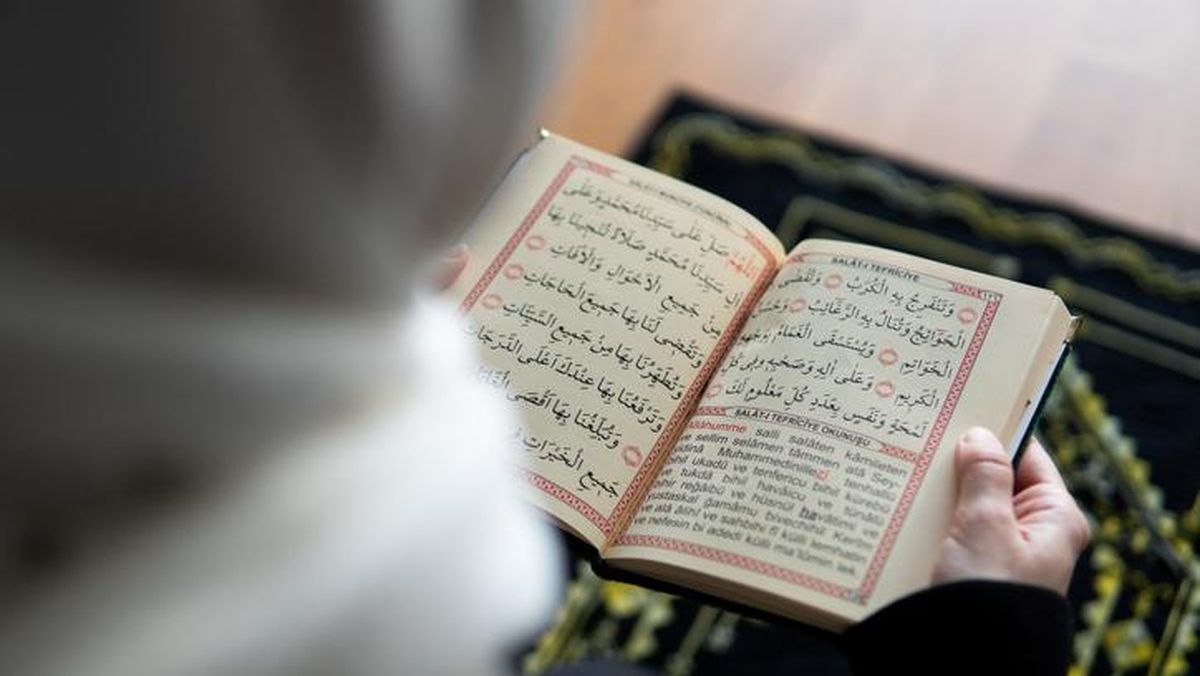 SALÂT-I TEFRÎCİYE
وَتَنْفَرِجُ بِهِ الْكُرَبُ وَتُقْضٰى
الْحَوَائِجُ وَتُنَالُ بِهِ الرَّغَائِبُ وَحُسْنُ
الْخَوَاتِمِ وَيُسْتَسْقَى الْغَمَامُ بِوَجْهِهِ
الْكَرِيمِ وَعَلٰى اٰلِهِ وَصَحْبِهِ فِى كُلِّ
لَمْحَةٍ وَنَفَسٍ بِعَدَدِ كُلِّ مَعْلُومٍ لَكَ
SALÂT-I TEFRÎCİYE OKUNUŞU
salli salâten kâmileten
ve sellim selâmen tâmmen alâ Sey-
Muhammedinillezî tenhallü
bihil ukadü ve tenfericu bihil kürebu
ve tukdâ bihil havâicu ve tünâlu
reğâibü ve hüsnül havâtimi ve
yustaskal ğamâmu bivechihil Kerîm
ve alâ âlihi ve sahbihî fî külli lemhatin
ve nefesin bi adedi külli ma'lûmin lek
اَللّٰهُمَّ صَلِّ عَلٰى سَيِّدِنَا مُحَمَّدٍ وَعَلٰى
اٰلِ سَيِّدِنَا مُحَمَّدٍ صَلَاةً تُنْجِينَا بِهَا
مِنْ جَمِيعِ الْاَحْوَالِ وَالْاٰفَاتِ
وَتَقْضِى لَنَا بِهَا جَمِيعَ الْحَاجَاتِ
وَتُطَهِّرُنَا بِهَا مِنْ جَمِيعِ السَّيِّئَاتِ
وَتَرْفَعُنَا بِهَا عِنْدَكَ اَعْلَى الدَّرَجَاتِ
وَتُبَلِّغُنَا بِهَا اَقْصَى
جَمِيعِ الْخَيْرَاتِ